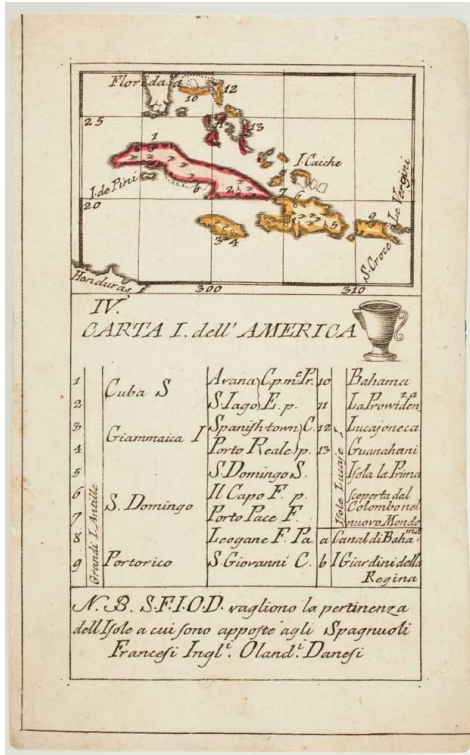 Florida
a
10
12
25
11
13
1
I. Caiche
I. de Pini
b
2
7
6
8
5
9
20
3
4
S. Croce
Le Vergini
Honduras
300
310
IV.
CARTA I. dell' AMERICA
Grandi I. Antille
Isole Lucaje I
1 Cuba S Avana C.p.mᵉPr. 10 Bahama
2 S. Iago E. p. 11 La Prowidenᶻᵃ
3 Giammaica I Spanish-town C. 12 Lucajoneca
4 Porto Reale p. 13 Guanahani
5 S. Domingo S. Isola la Prima
6 S. Domingo Il Capo F. p. scoperta dal
7 Porto Pace F. Colombo nel
nuovo Mondo
8 Leogane F. Pa a Canal di Bahaᵐᵃ
9 Portorico S. Giovanni C. b I Giardini della
Regina
N. B. S. F. I. O. D. vagliono la pertinenza
dell Isole a cui sono apposte agli Spagnuoli
Francesi Inglⁱ. Olandⁱ. Danesi